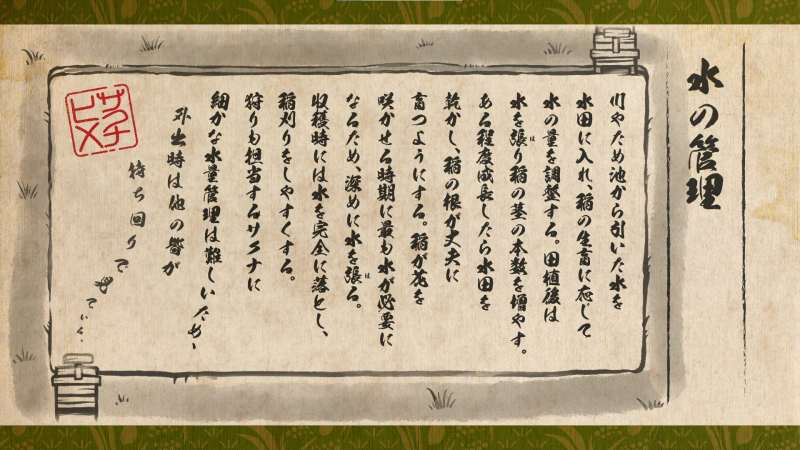 水の管理
川やため池から引いた水を
水田に入れ、稲の生育に応じて
水の量を調整する。田植後は
水を張り稲の茎の本数を増やす。
は
ある程度成長したら水田を
乾かし、稲の根が丈夫に
育つようにする。稲が花を
咲かせる時期に最も水が必要に
なるため、深めに水を張る。
は
収穫時には水を完全に落とし、
稲刈りをしやすくする。
狩りも担当するサクナに
細かな水量管理は難しいため、
外出時は他の皆が
持ち回りで見ている。
サクナ
ヒメ